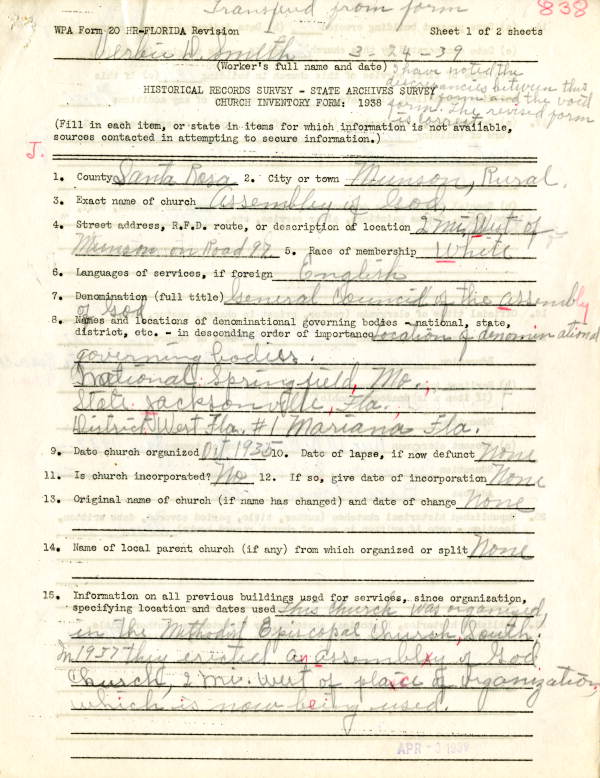 Transfered from form
838
WPA Form 20 HR-FLORIDA Revision Sheet 1 of 2 sheets
Verbie D. Smith 3-24-39
(Worker's full name and date)
I have noted the
discrepancies between this
form and the void
form. The revised form
is correct
HISTORICAL RECORDS SURVEY - STATE ARCHIVES SURVEY
CHURCH INVENTORY FORM: 1938
(Fill in each item, or state in items for which information is not available,
sources contacted in attempting to secure information.)
J.
1. County Santa Rosa 2. City or town Munson, Rural.
3. Exact name of church Assembly of God
4. Street address, R.F.D. route, or description of location 2 mi, West of
Munson on Road 97 5. Race of membership White
6. Languages of services, if foreign English
7. Denomination (full title) General Council of the Assembly
of God
8. Names and locations of denominational governing bodies - national, state,
district, etc. - in descending order of importance Location of denominational
governing bodies.
National. Springfield, Mo.,
State. Jacksonville, Fla.,
District. West Fla. #1 Mariana Fla.
9. Date church organized Oct. 1935 10. Date of lapse, if now defunct None
11. Is church incorporated? No 12. If so, give date of incorporation None
13. Original name of church (if name has changed) and date of change None
14. Name of local parent church (if any) from which organized or split None
15. Information on all previous buildings used for services, since organization,
specifying location and dates used This church was organized,
in The Methodist Episcopal Church, South.
In 1937 they erected an assembly of God
Church, 2 mi. west of place of organization,
which is now being used.
APR -3 1939